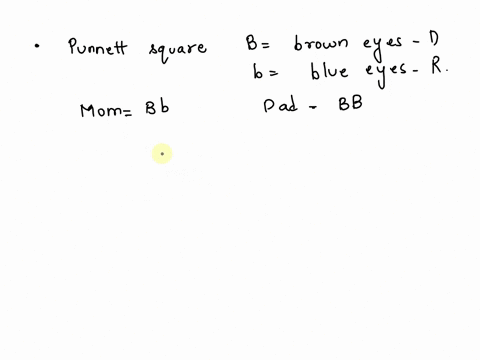 • Punnett square B = brown eyes - D
b = blue eyes - R.
Mom = Bb Dad - BB